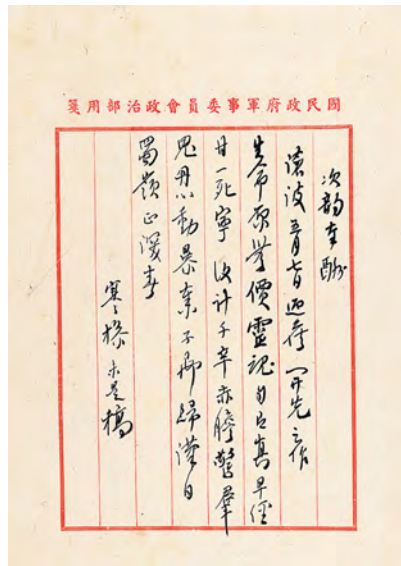 國民政府軍事委員會政治部用箋
次韵奉酬
滄波 開先之作
生命原 價靈魂自有真早經
甘一死寧復計千辛赤膽驚羣
鬼丹心動暴秦不 歸漢日
蜀嶺正深春
寒操未是稿